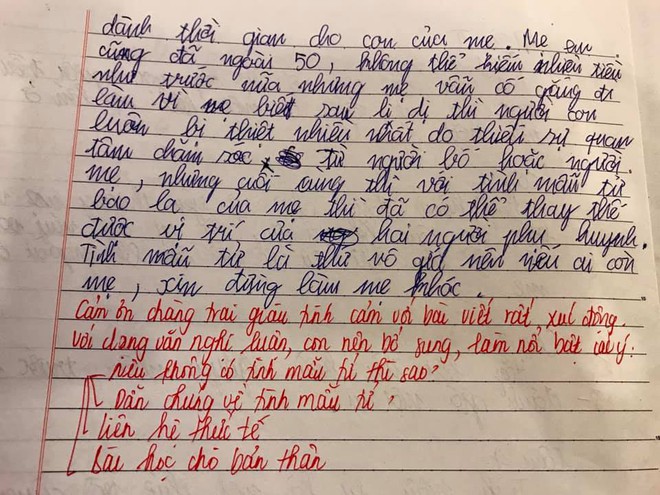 dành thời gian cho con của mẹ. Mẹ em
cũng đã ngoài 50, không thể kiếm nhiều tiền
như trước nữa nhưng mẹ vẫn cố gắng đi
làm vì mẹ biết sau li dị thì người con
luôn bị thiệt nhiều nhất do thiếu sự quan
tâm chăm sóc, từ người bố hoặc người
mẹ, nhưng cuối cùng thì với tình mẫu tử
bao la của mẹ thì đã có thể thay thế
được vị trí của hai người phụ huynh.
Tình mẫu tử là thứ vô giá nên nếu ai còn
mẹ, xin đừng làm mẹ khóc.
Cảm ơn chàng trai giàu tình cảm với bài viết rất xúc động.
Với dạng văn nghị luận, con nên bổ sung, làm nổi bật các ý:
nếu không có tình mẫu tử thì sao?
Dẫn chứng về tình mẫu tử
liên hệ thực tế
Bài học cho bản thân